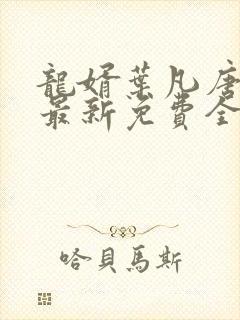 龍婿葉凡唐
最新免費全
哈貝馬斯